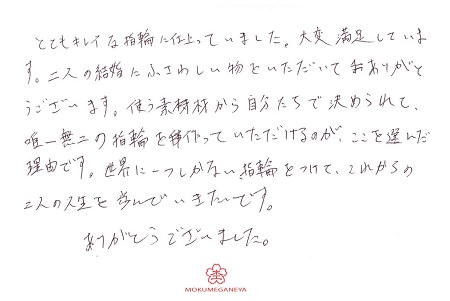 とてもキレイな指輪に仕上っていました。大変満足していま
す。二人の結婚にふさわしい物をいただいておありがと
うございます。使う素材から自分たちで決められて、
唯一無二の指輪を作っていただけるのが、ここを選んだ
理由です。世界に一つしかない指輪をつけて、これからの
二人の人生を歩んでいきたいです。
ありがとうございました。
MOKUMEGANEYA